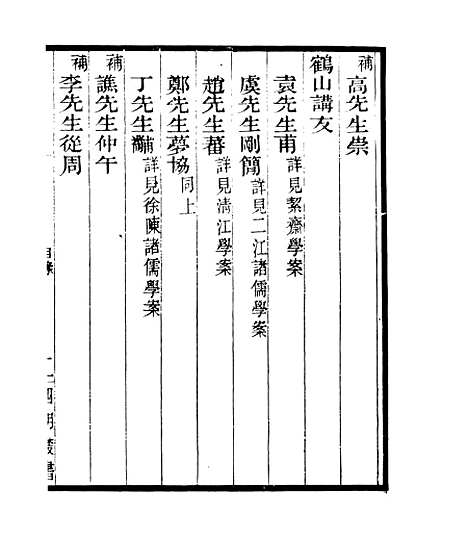 補高先生崇
鶴山講友
袁先生甫詳見絜齋學案
虞先生剛簡詳見二江諸儒學案
趙先生蕃詳見清江學案
鄭先生夢協同上
丁先生黼詳見徐陳諸儒學案
補譙先生仲午
補李先生從周
四明叢書